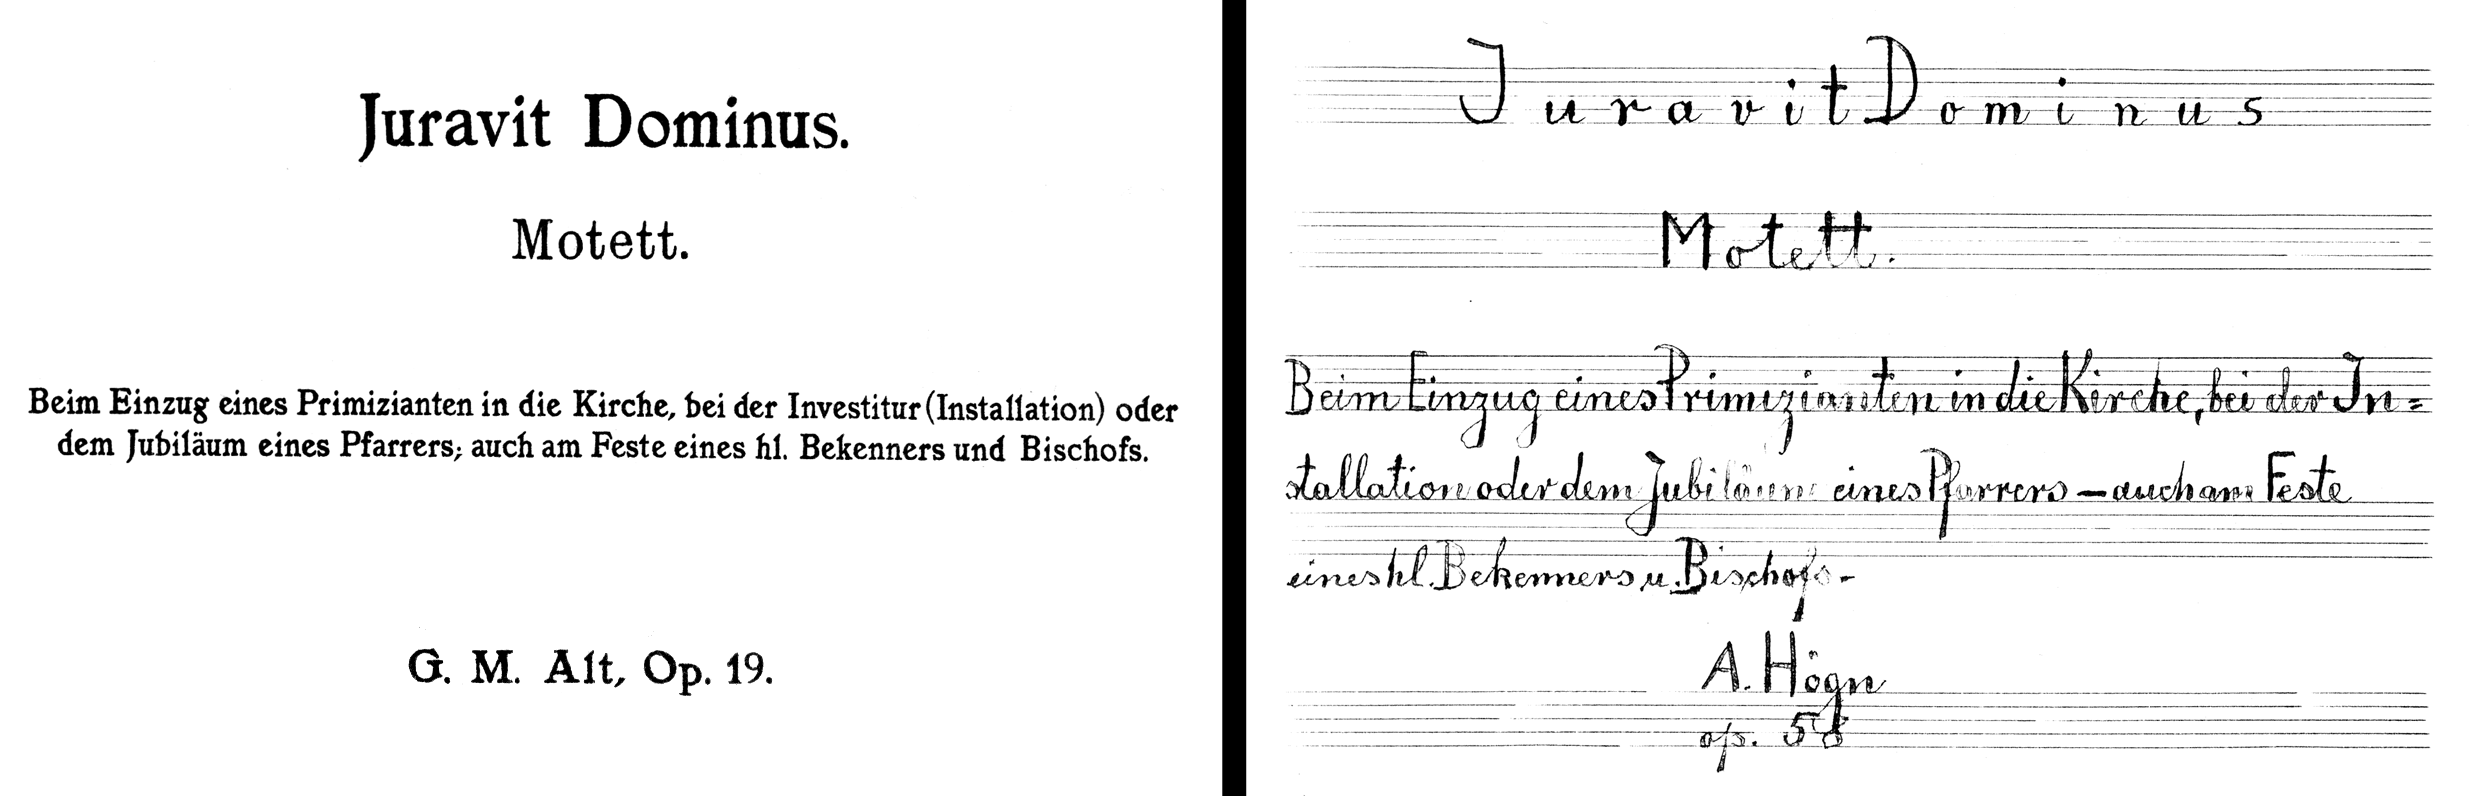 Juravit Dominus.
Motett.
Beim Einzug eines Primizianten in die Kirche, bei der Investitur (Installation) oder
dem Jubiläum eines Pfarrers; auch am Feste eines hl. Bekenners und Bischofs.
G. M. Alt, Op. 19.
Juravit Dominus
Motett.
Beim Einzug eines Primizianten in die Kirche, bei der In=
stallation oder dem Jubiläum eines Pfarrers – auch am Feste
eines hl. Bekenners u. Bischofs -
A. Högn
op. 58